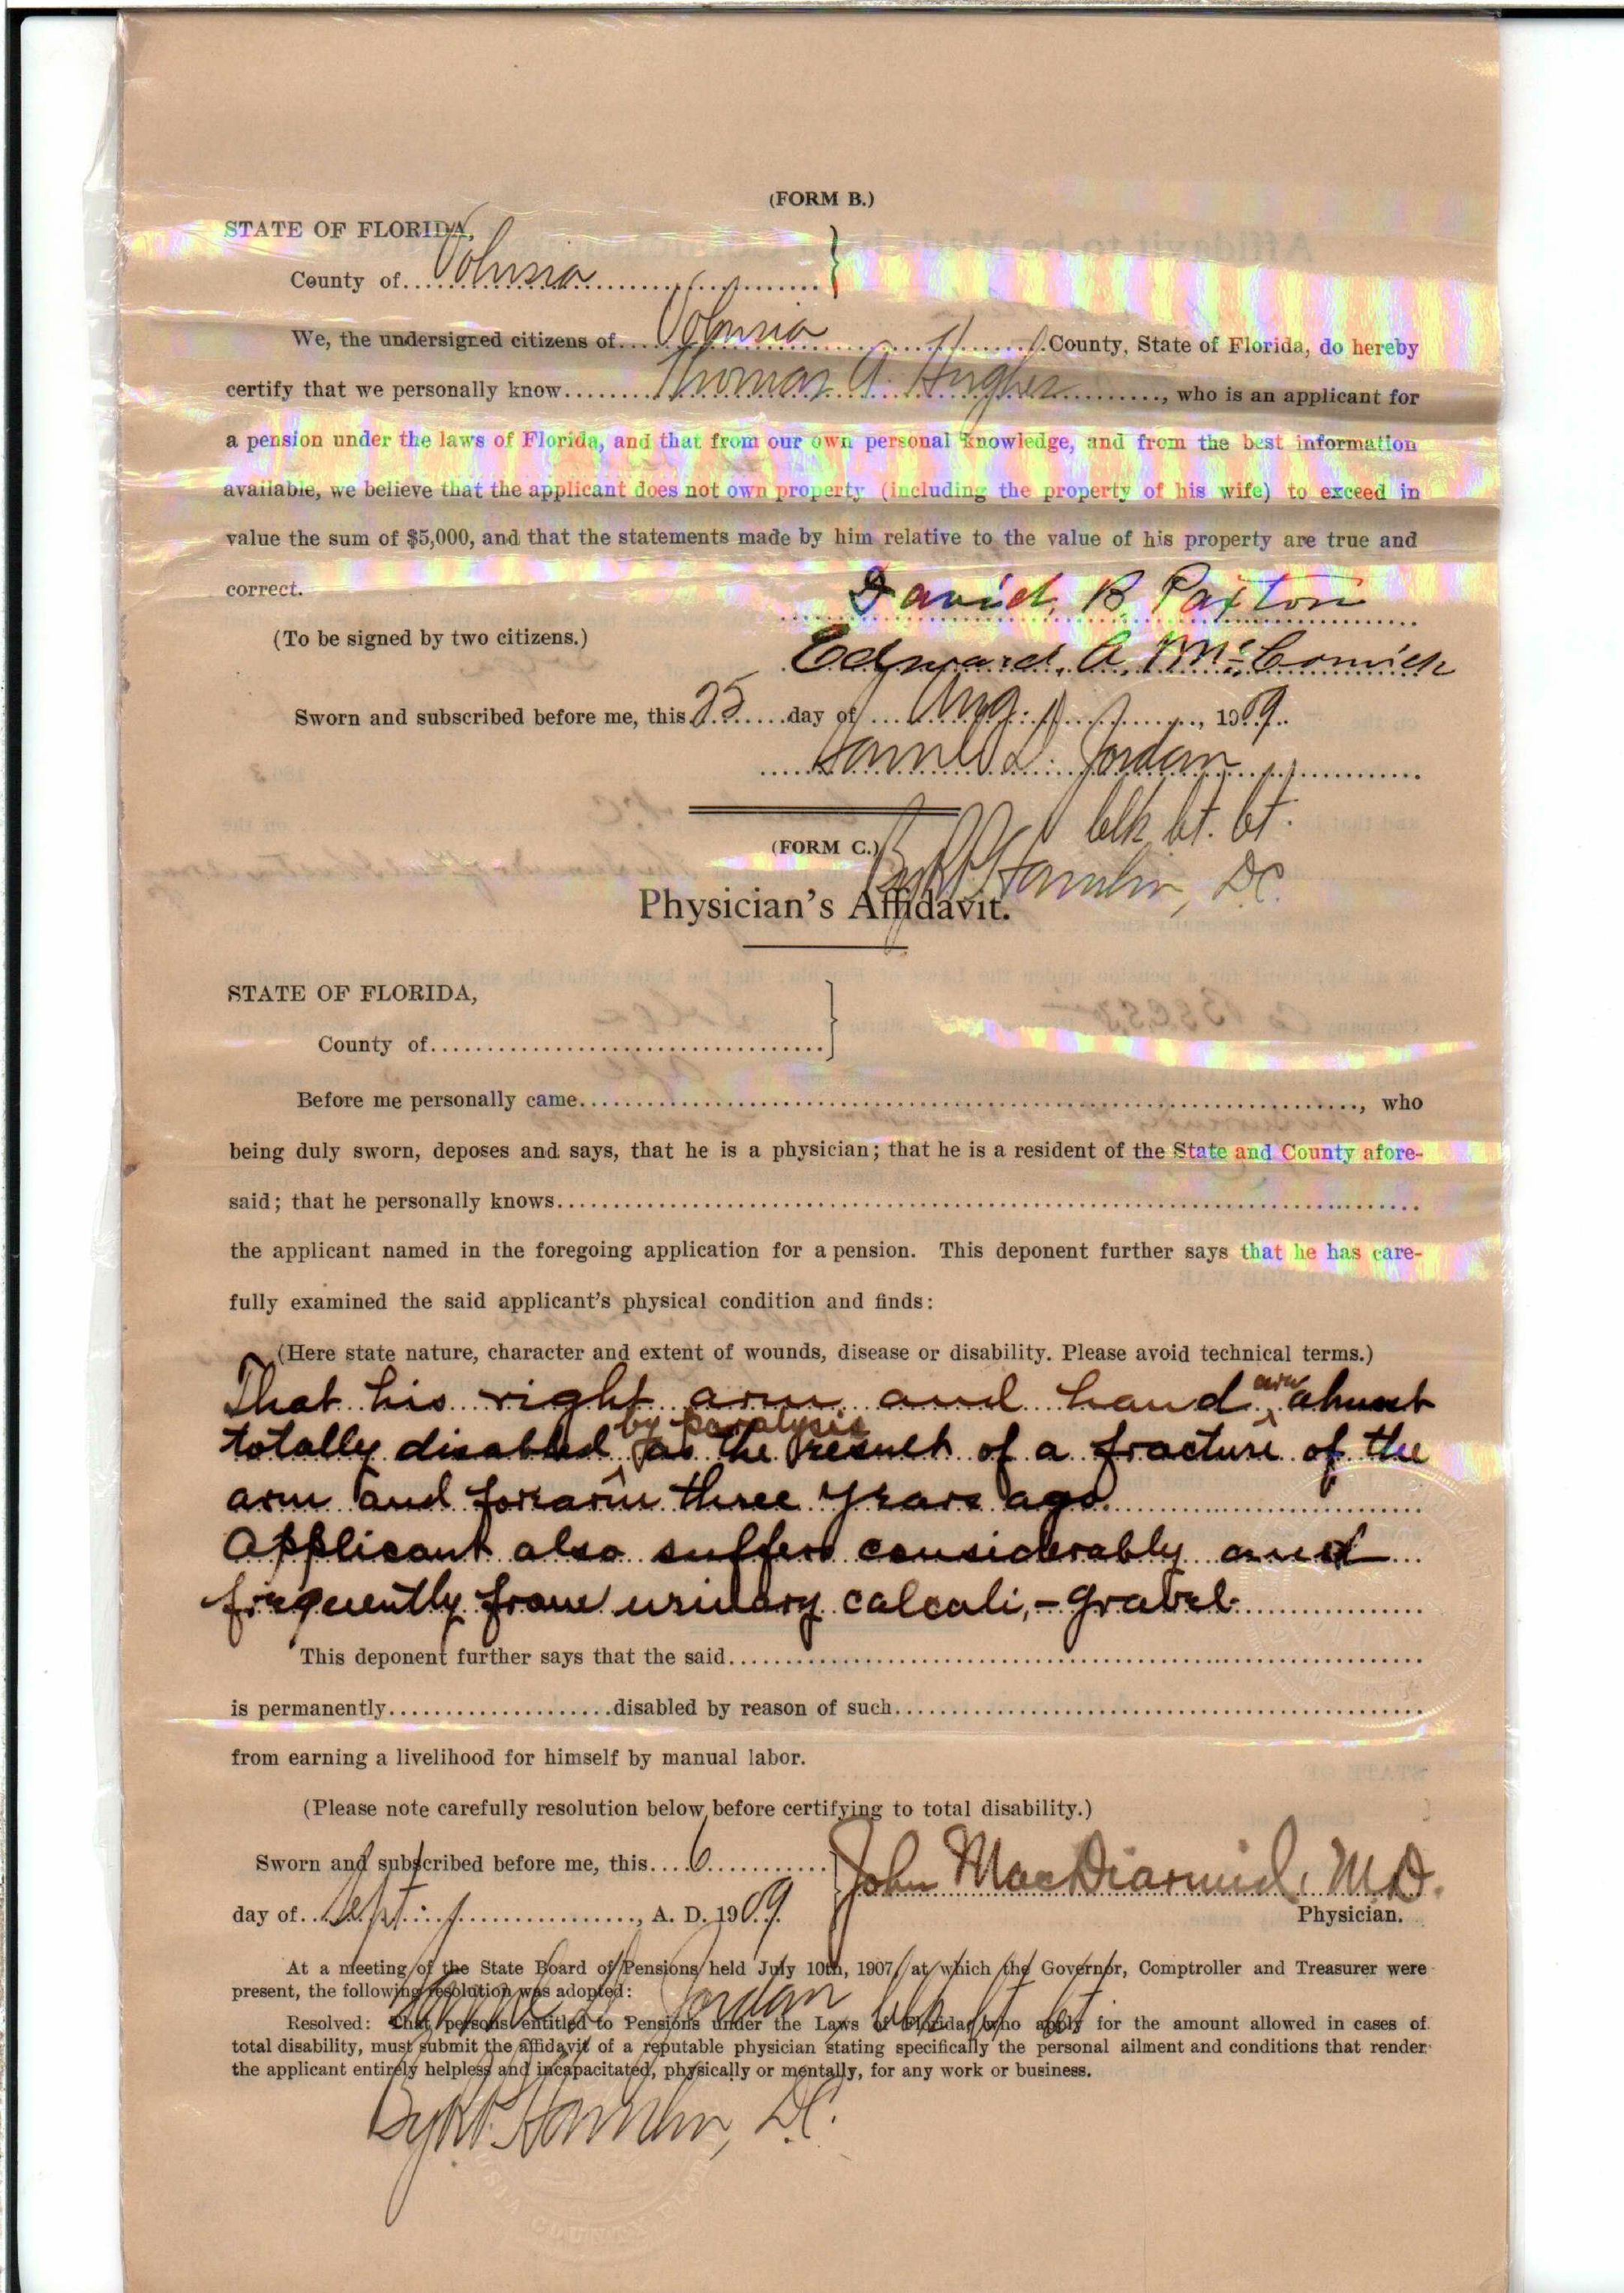 (FORM B.)
STATE OF FLORIDA,
County of Volusia
We, the undersigned citizens of Volusia County, State of Florida, do hereby
certify that we personally know Thomas A. Hughes, who is an applicant for
a pension under the laws of Florida, and that from our own personal knowledge, and from the best information
available, we believe that the applicant does not own property (including the property of his wife) to exceed in
value the sum of $5,000, and that the statements made by him relative to the value of his property are true and
correct.
David. B Paxton
(To be signed by two citizens.)
Edward. A. McCormick
Sworn and subscribed before me, this 25 day of Aug., 1909.
Jordan
clk ct. ct.
(FORM C.)
Hamlin, D.C.
Physician's Affidavit.
STATE OF FLORIDA,
County of
Before me personally came, who
being duly sworn, deposes and says, that he is a physician; that he is a resident of the State and County afore-
said; that he personally knows
the applicant named in the foregoing application for a pension. This deponent further says that he has care-
fully examined the said applicant's physical condition and finds:
(Here state nature, character and extent of wounds, disease or disability. Please avoid technical terms.)
That his right arm and hand are almost
totally disabled by paralysis as the result of a fracture of the
arm and forearm three years ago.
Applicant also suffers considerably and
frequently from urinary calculi, - gravel.
This deponent further says that the said
is permanently disabled by reason of such
from earning a livelihood for himself by manual labor.
(Please note carefully resolution below before certifying to total disability.)
Sworn and subscribed before me, this 6
John MacDiarmid, M.D.
day of Sept., A. D. 1909.
Physician.
At a meeting of the State Board of Pensions held July 10th, 1907, at which the Governor, Comptroller and Treasurer were
present, the following resolution was adopted:
Jordan clk ct ct
Resolved: That persons entitled to Pensions under the Laws of Florida, who apply for the amount allowed in cases of
total disability, must submit the affidavit of a reputable physician stating specifically the personal ailment and conditions that render
the applicant entirely helpless and incapacitated, physically or mentally, for any work or business.
Hamlin, D.C.